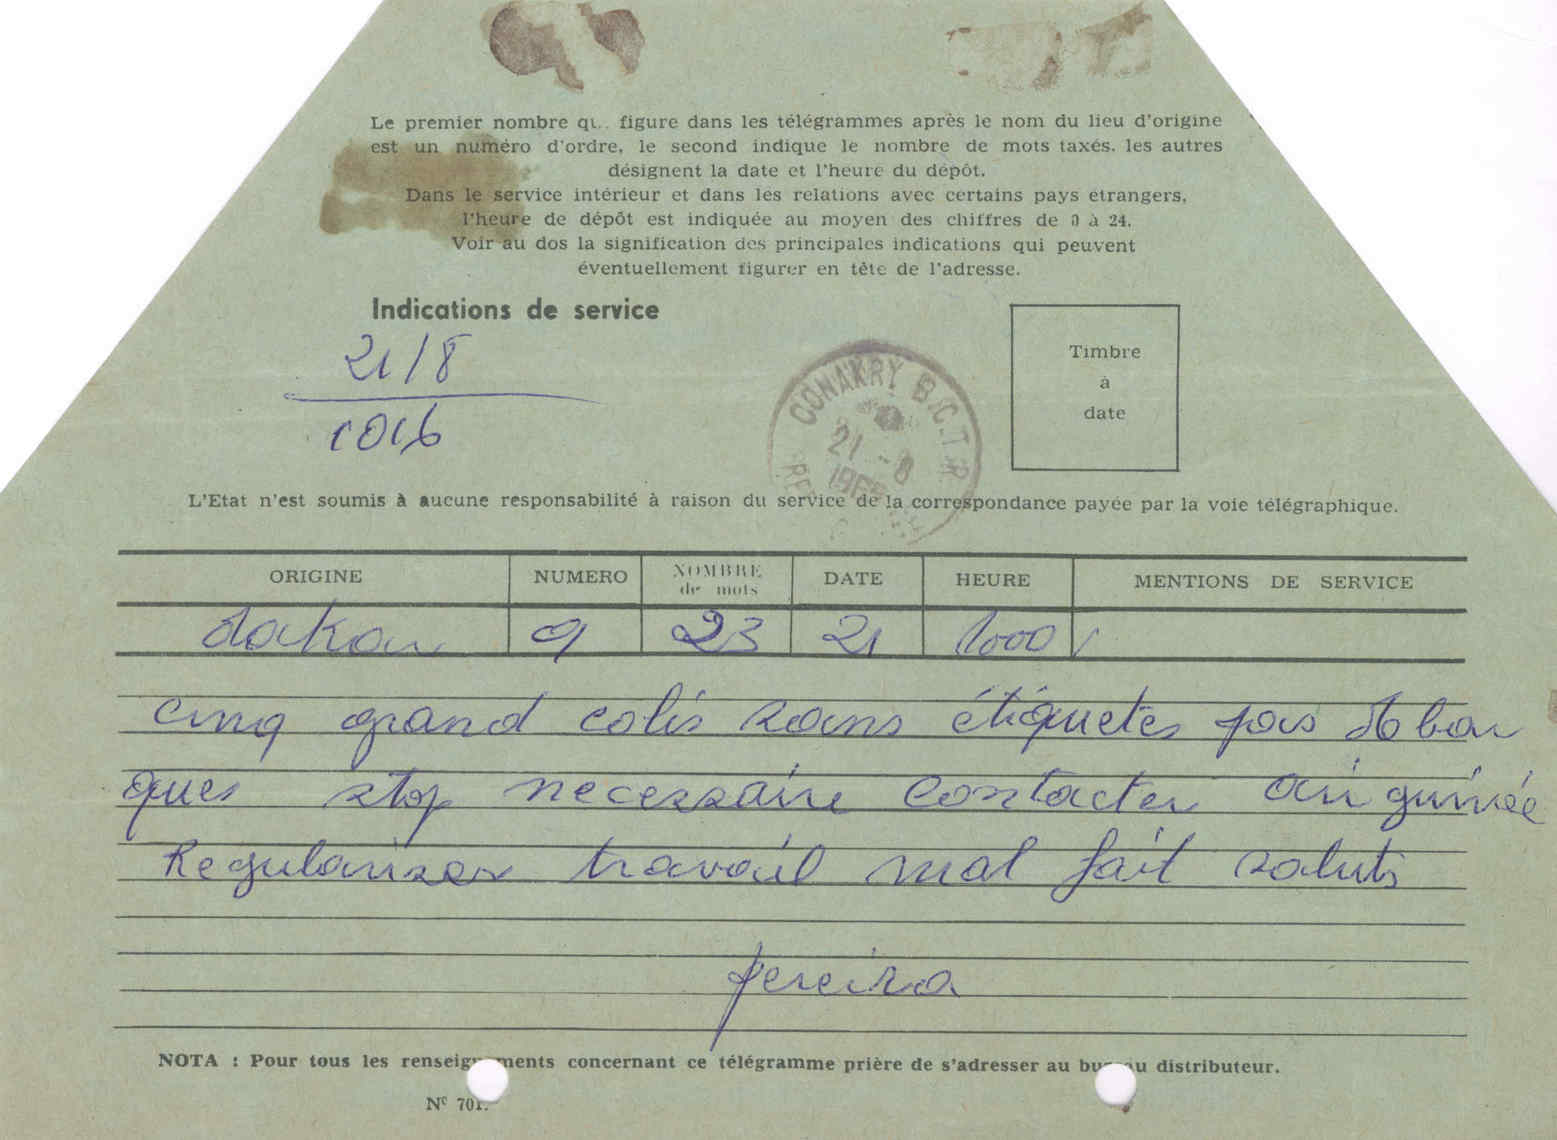 Le premier nombre qu.. figure dans les télégrammes après le nom du lieu d'origine
est un numéro d'ordre, le second indique le nombre de mots taxés. les autres
désignent la date et l'heure du dépôt.
Dans le service intérieur et dans les relations avec certains pays étrangers,
l'heure de dépôt est indiquée au moyen des chiffres de 0 à 24.
Voir au dos la signification des principales indications qui peuvent
éventuellement figurer en tête de l'adresse.
Indications de service
21/8
1016
CONAKRY B.C.T.R
21 -8
Timbre
à
date
L'Etat n'est soumis à aucune responsabilité à raison du service de la correspondance payée par la voie télégraphique.
ORIGINE NUMERO NOMBRE de mots DATE HEURE MENTIONS DE SERVICE
dakar 9 23 21 1000
cinq grand colis sans étiquetes pas
ques stop necessaire contacter air guinée
Regulariser travail mal fait saluts
pereira
NOTA : Pour tous les renseignements concernant ce télégramme prière de s'adresser au bureau distributeur.
N° 701.